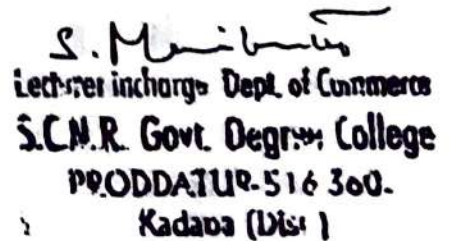 Lecturer incharge Dept. of Commerce
S.C.N.R. Govt. Degree College
PRODDATUR-516 360.
Kadapa (Dist)